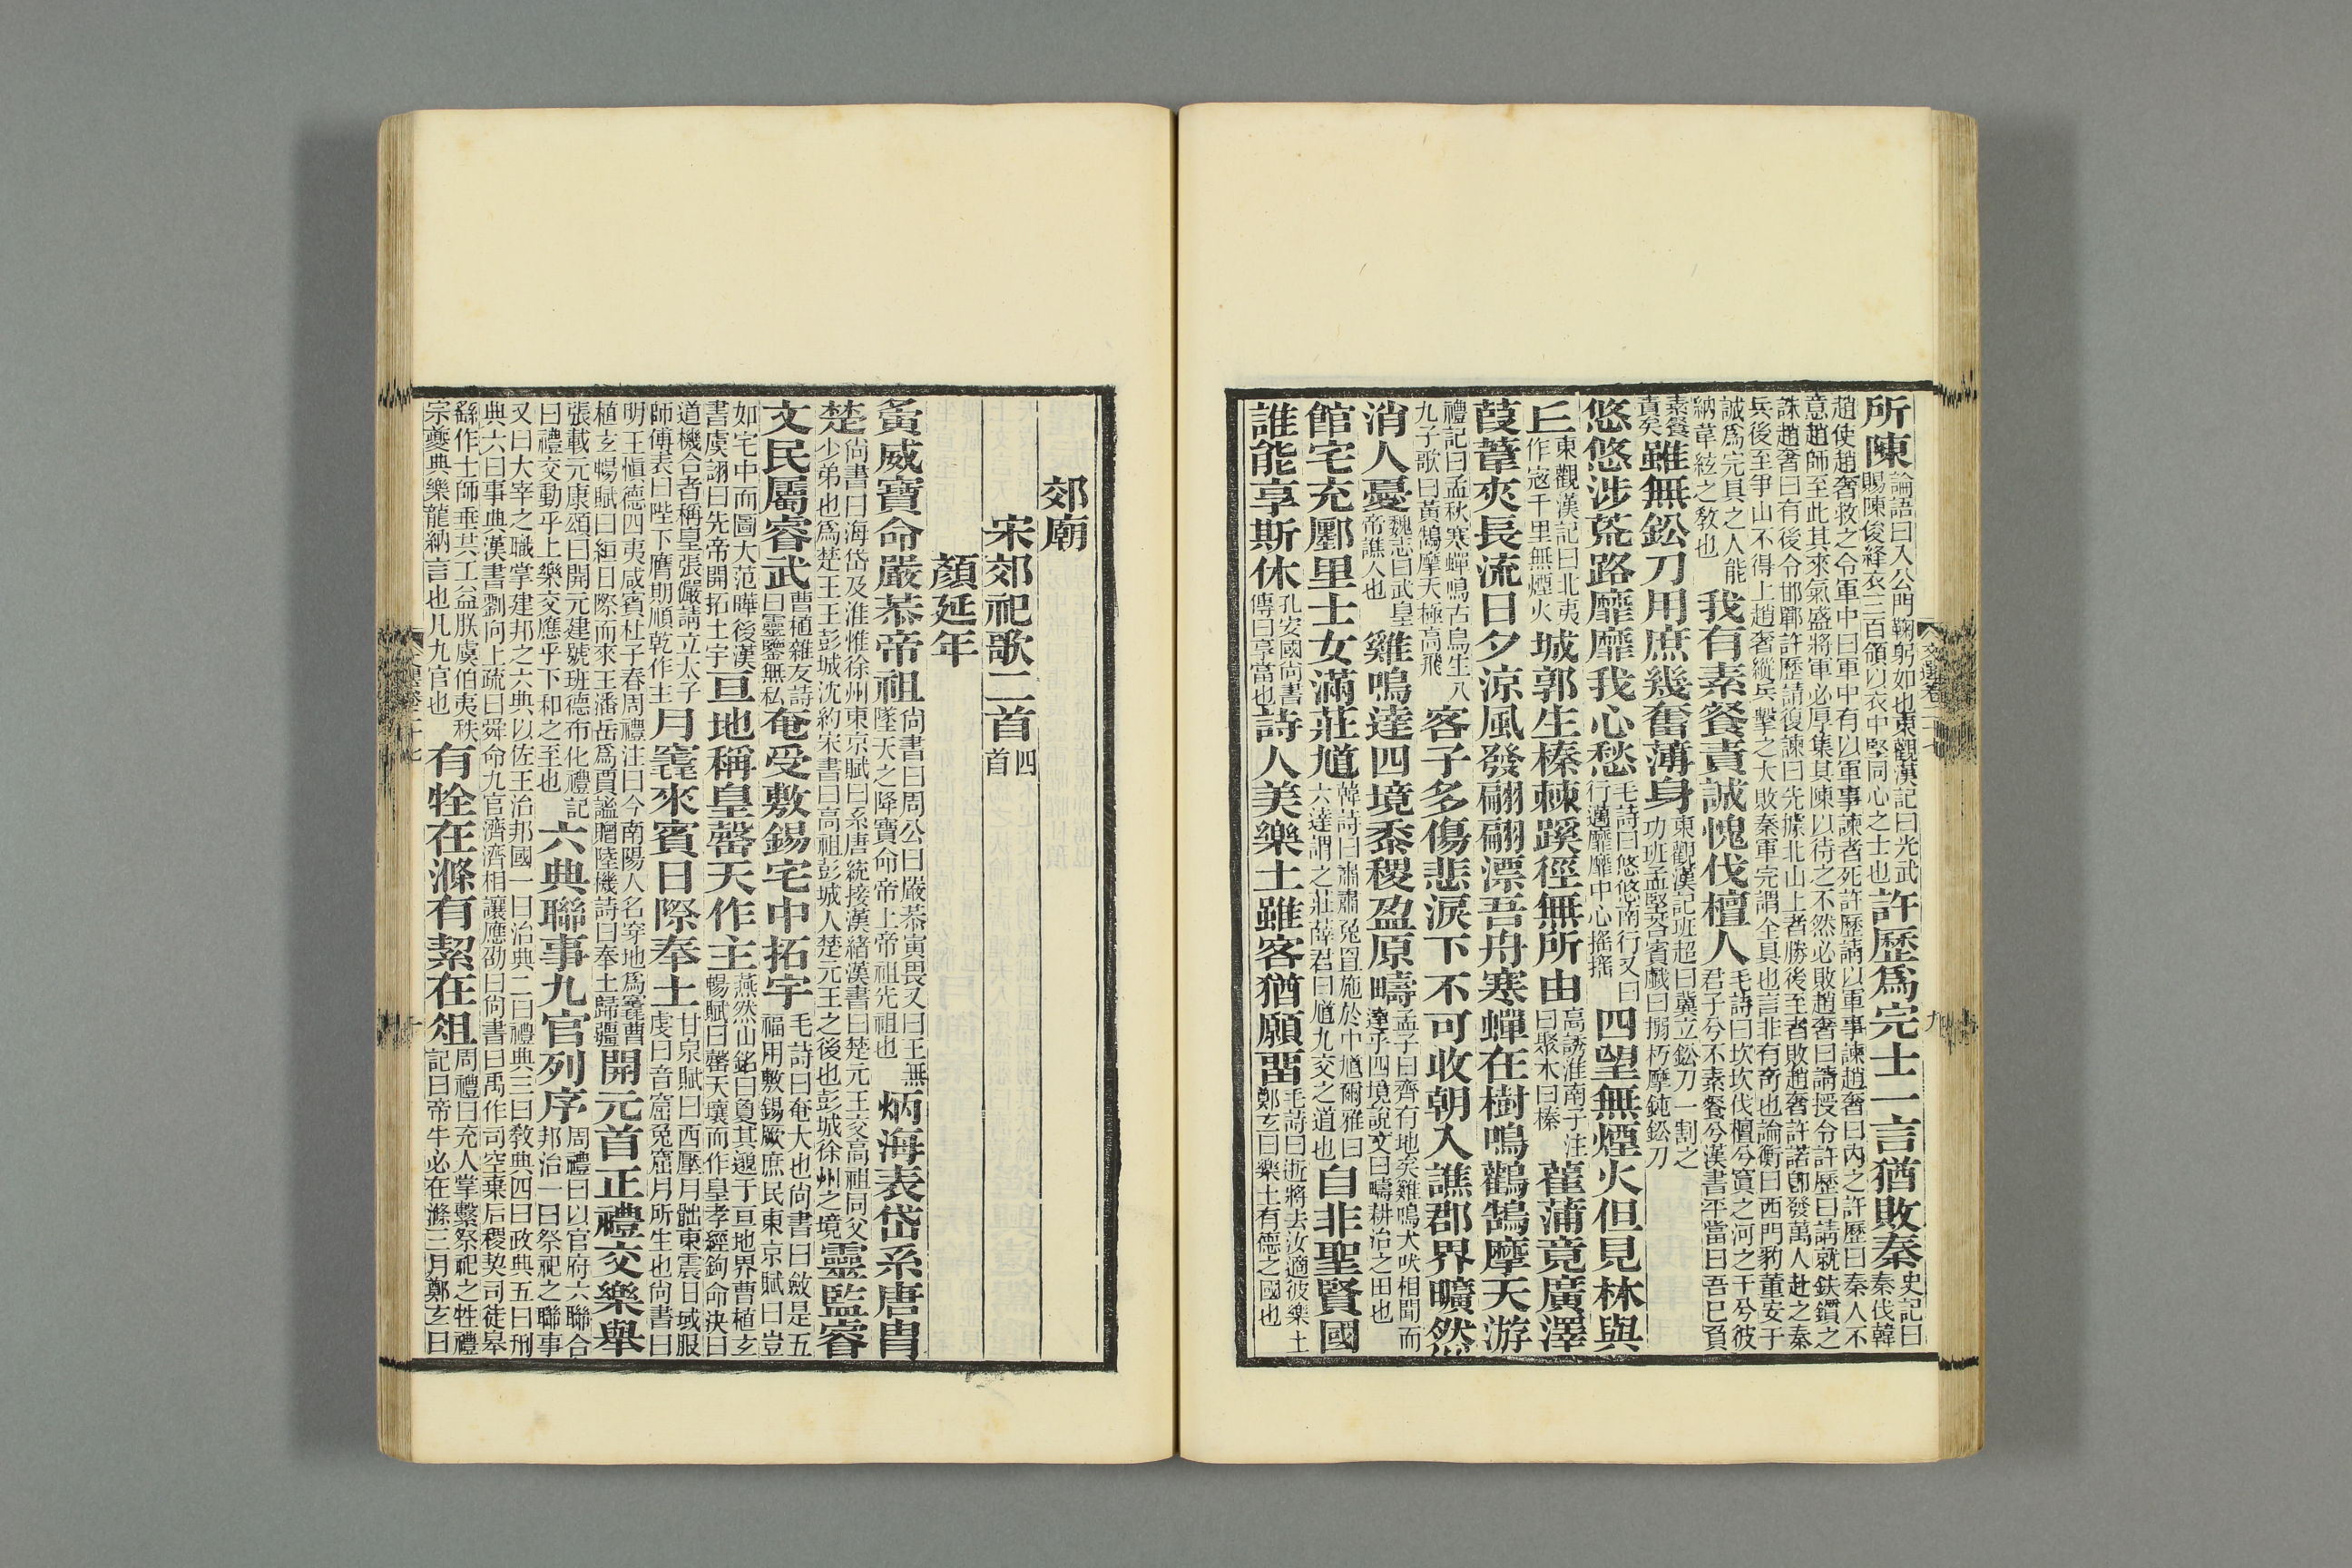 所陳論語曰入公門鞠躬如也東觀漢記曰光武賜陳俊絳衣三百領以衣中堅同心之士也許歷爲完士一言猶敗秦史記曰秦伐韓
趙使趙奢救之令軍中曰軍中有以軍事諫者死許歷請以軍事諫趙奢曰內之許歷曰秦人不意趙師至此其來氣盛將軍必厚集其陳以待之不然必敗趙奢曰請授令許歷曰請就鈇鑕之
誅趙奢曰有後令邯鄲許歷請復諫曰先據北山上者勝後至者敗趙奢許諾卽發萬人赴之秦兵後至爭山不得上趙奢縱兵擊之大敗秦軍完謂全具也言非有奇也論衡曰西門豹董安于
誠爲完具之人能納韋絃之敎也我有素餐責誠愧伐檀人毛詩曰坎坎伐檀兮寘之河之干兮彼君子兮不素餐兮漢書平當曰吾已負
素餐責矣雖無鉛刀用庶幾奮薄身東觀漢記班超曰冀立鉛刀一割之功班孟堅荅賓戲曰搦朽摩鈍鉛刀
悠悠涉荒路靡靡我心愁毛詩曰悠悠南行又曰行邁靡靡中心搖搖四望無煙火但見林與
丘東觀漢記曰北夷作宼千里無煙火城郭生榛棘蹊徑無所由高誘淮南子注曰聚木曰榛雚蒲竟廣澤
葭葦夾長流日夕涼風發翩翩漂吾舟寒蟬在樹鳴鸛鵠摩天游
禮記曰孟秋寒蟬鳴古鳥生八九子歌曰黃鵠摩天極高飛客子多傷悲淚下不可收朝入譙郡界曠然
消人憂魏志曰武皇帝譙人也雞鳴達四境黍稷盈原疇孟子曰齊有地矣雞鳴犬吠相聞而達乎四境說文曰疇耕治之田也
館宅充鄽里士女滿莊馗韓詩曰肅肅兔罝施於中馗爾雅曰六達謂之莊薛君曰馗九交之道也自非聖賢國
誰能享斯休孔安國尙書傳曰享當也詩人美樂土雖客猶願畱毛詩曰逝將去汝適彼樂土鄭玄曰樂土有德之國也
郊廟
宋郊祀歌二首四首
顏延年
夤威寶命嚴恭帝祖尙書曰周公曰嚴恭寅畏又曰王無墜天之降寶命帝上帝祖先祖也炳海表岱系唐胄
楚尙書曰海岱及淮惟徐州東京賦曰系唐統接漢緒漢書曰楚元王交高祖同父少弟也爲楚王王彭城沈約宋書曰高祖彭城人楚元王之後也彭城徐州之境靈監睿
文民屬睿武曹植雜友詩曰靈鑒無私奄受敷錫宅中拓宇毛詩曰奄大也尙書曰斂是五福用敷錫厥庶民東京賦曰豈
如宅中而圖大范曄後漢書虞詡曰先帝開拓土宇亘地稱皇罄天作主燕然山銘曰夐其邈于亘地界曹植玄暢賦曰罄天壤而作皇孝經鉤命决曰
道機合者稱皇張儼請立太子師傅表曰陛下膺期順乾作主月竁來賓日際奉土甘泉賦曰西壓月䠂東震日域服虔曰音窟兔窟月所生也尙書曰
明王愼德四夷咸賓杜子春周禮注曰今南陽人名穿地爲竁曹植玄暢賦曰絙日際而來王潘岳爲賈謐贈陸機詩曰奉土歸疆開元首正禮交樂舉
張載元康頌曰開元建號班德布化禮記曰禮交動乎上樂交應乎下和之至也六典聯事九官列序周禮曰以官府六聯合邦治一曰祭祀之聯事
又曰大宰之職掌建邦之六典以佐王治邦國一曰治典二曰禮典三曰敎典四曰政典五曰刑典六曰事典漢書劉向上疏曰舜命九官濟濟相讓應劭曰尙書曰禹作司空棄后稷契司徒皋
繇作士師垂共工益朕虞伯夷秩宗夔典樂龍納言也凡九官也有牷在滌有絜在俎周禮曰充人掌繫祭祀之牲禮記曰帝牛必在滌三月鄭玄曰